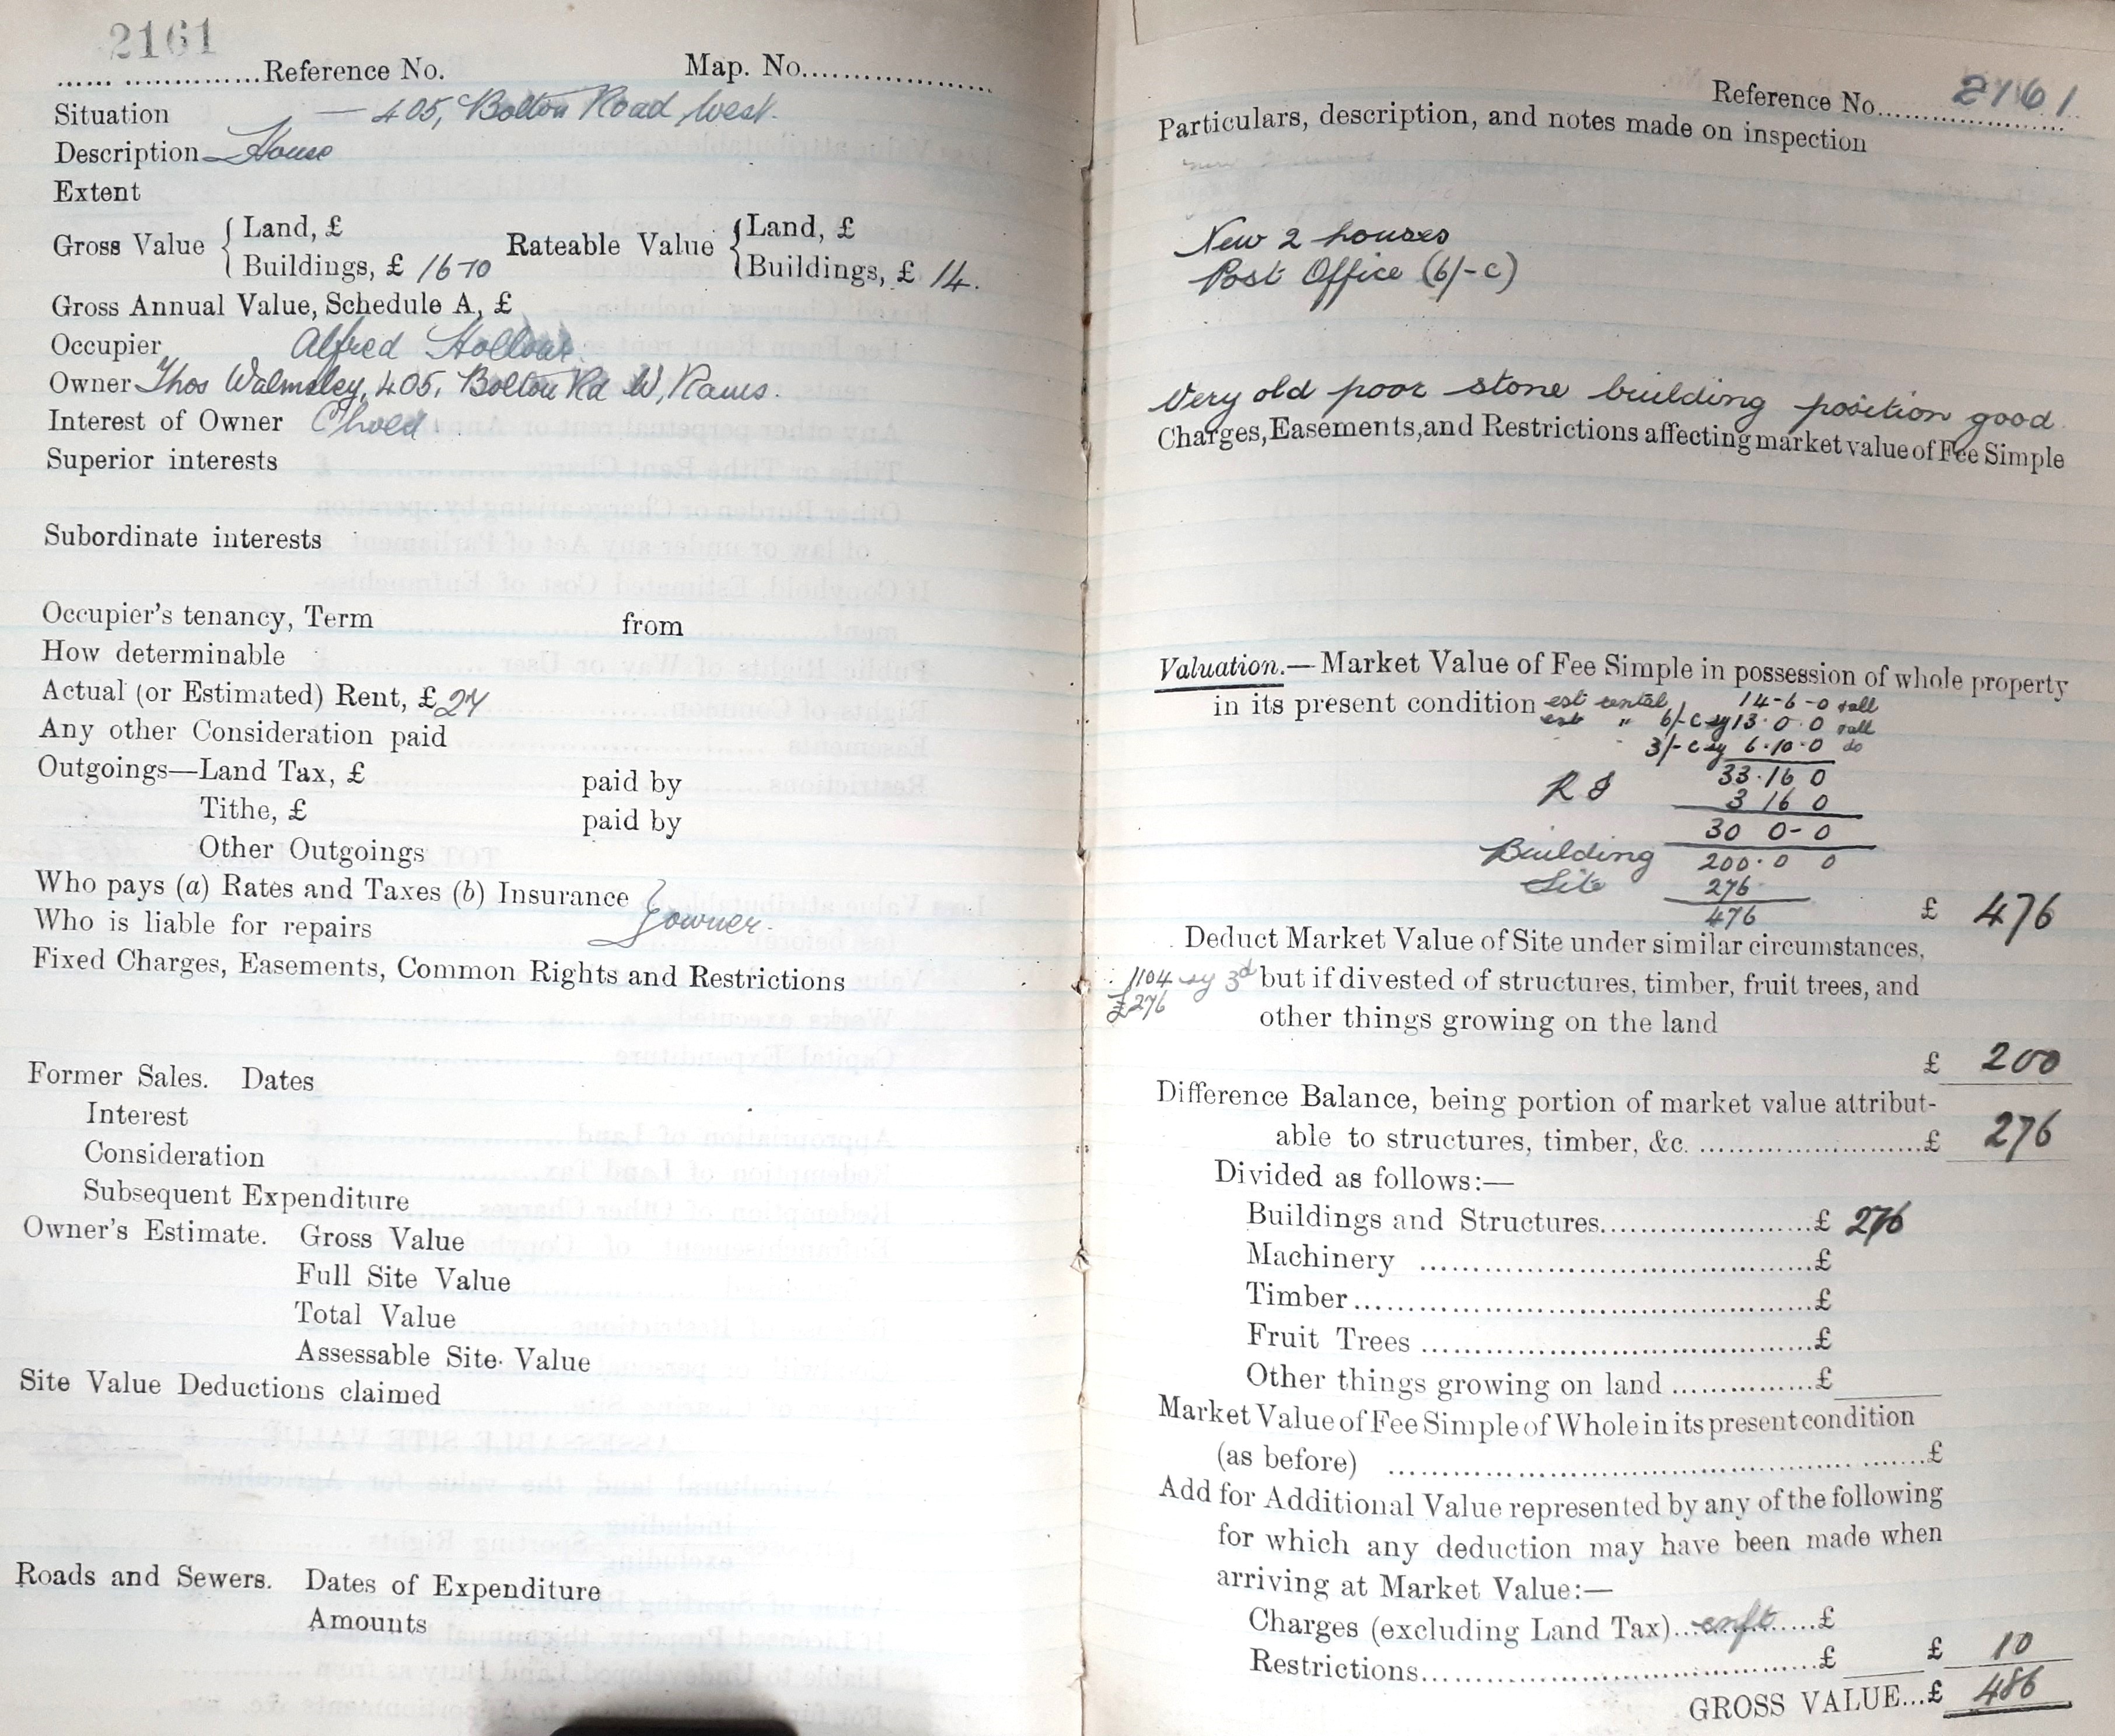 2161
...... ..............Reference No. Map. No....................
Situation — 405, Bolton Road West.
Description House
Extent
Gross Value { Land, £ Rateable Value { Land, £
Buildings, £ 16-10 Buildings, £ 14.
Gross Annual Value, Schedule A, £
Occupier Alfred
Owner Thos Walmsley, 405, Bolton Rd W, Rams.
Interest of Owner C'hold
Superior interests
Subordinate interests
Occupier's tenancy, Term from
How determinable
Actual (or Estimated) Rent, £ 24
Any other Consideration paid
Outgoings—Land Tax, £ paid by
Tithe, £ paid by
Other Outgoings
Who pays (a) Rates and Taxes (b) Insurance } owner.
Who is liable for repairs
Fixed Charges, Easements, Common Rights and Restrictions
Former Sales. Dates
Interest
Consideration
Subsequent Expenditure
Owner's Estimate. Gross Value
Full Site Value
Total Value
Assessable Site Value
Site Value Deductions claimed
Roads and Sewers. Dates of Expenditure
Amounts
Reference No. 2161
Particulars, description, and notes made on inspection
New 2 houses
Post Office (6/-c)
Very old poor stone building position good
Charges, Easements, and Restrictions affecting market value of Fee Simple
Valuation.—Market Value of Fee Simple in possession of whole property
in its present condition est rental 14-6-0
est " 6/- c 13.0.0
3/- c 6.10.0 do
33.16 0
3 16 0
30 0-0
Building 200.0 0
Site 276
476 £ 476
Deduct Market Value of Site under similar circumstances,
1104 sy 3d but if divested of structures, timber, fruit trees, and
£276
other things growing on the land
£ 200
Difference Balance, being portion of market value attribut-
able to structures, timber, &c. ........................£ 276
Divided as follows:—
Buildings and Structures......................£ 276
Machinery ........................................£
Timber................................................£
Fruit Trees .........................................£
Other things growing on land ...............£
Market Value of Fee Simple of Whole in its present condition
(as before) ......................................................£
Add for Additional Value represented by any of the following
for which any deduction may have been made when
arriving at Market Value:—
Charges (excluding Land Tax)... enft ......£
Restrictions.......................................£ £ 10
GROSS VALUE...£ 486